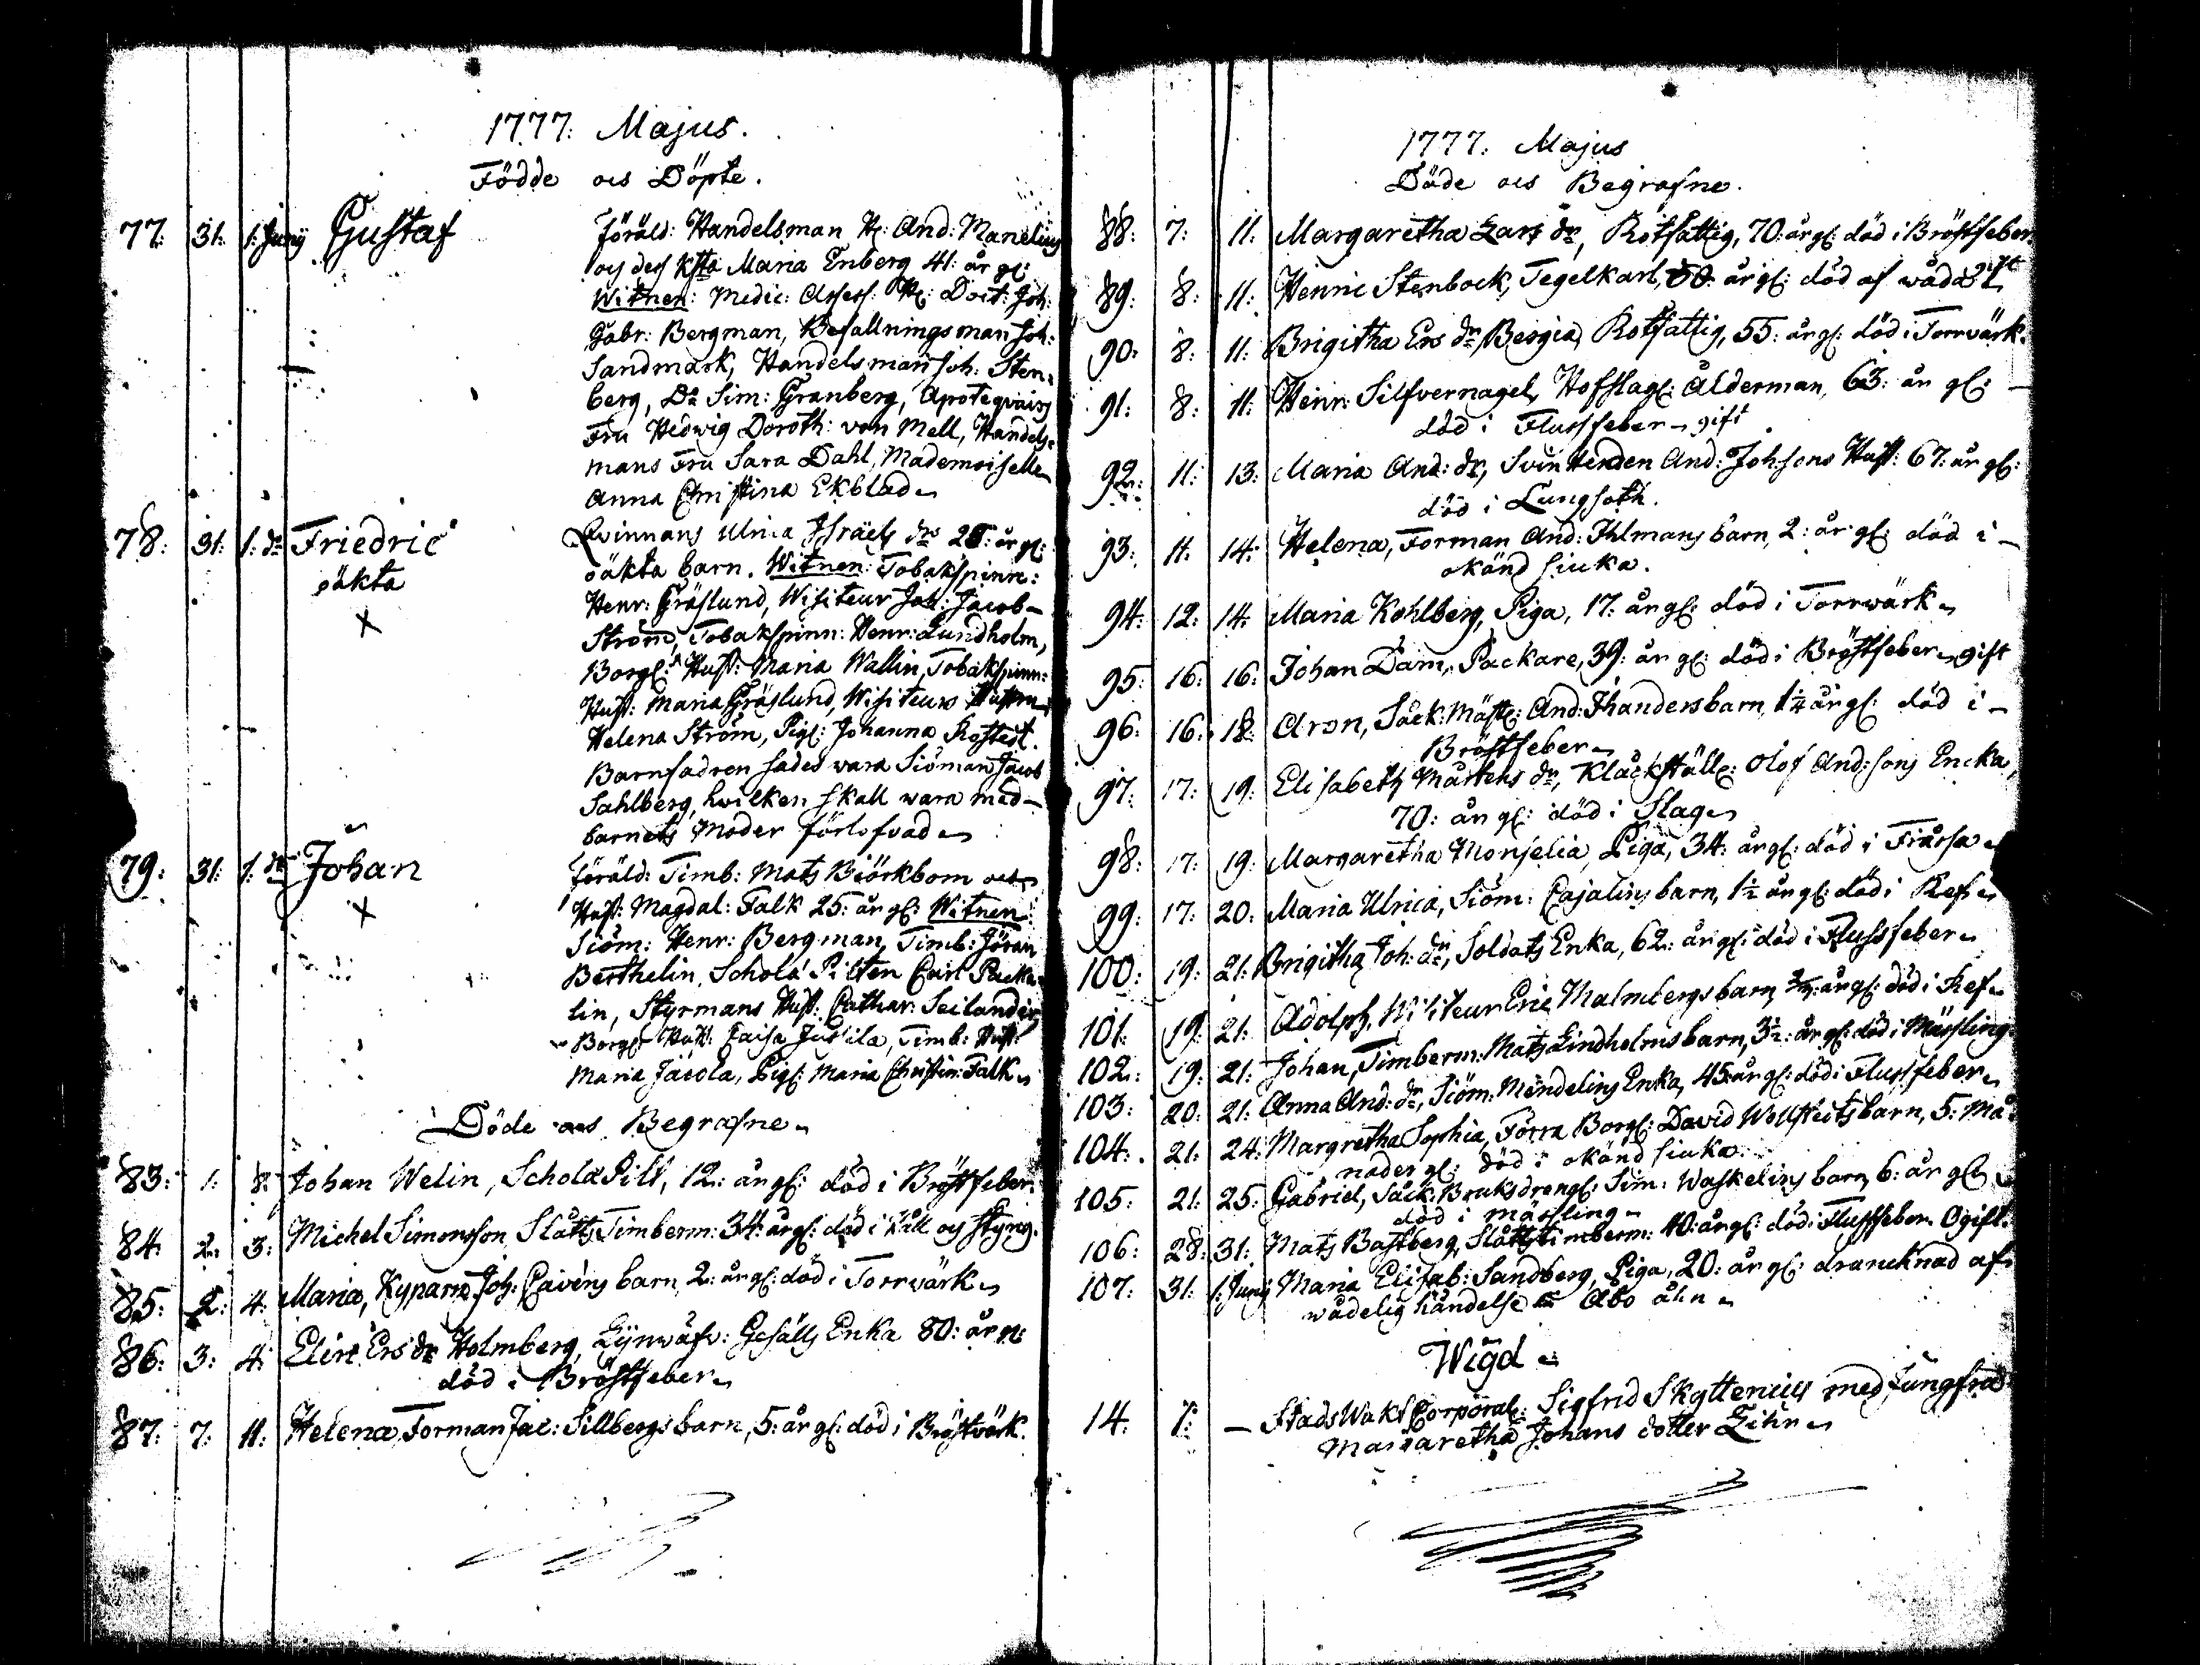 1777: Majus.
Födde och Döpte.
77: 31: 1: Junij Gustaf Föräld: Handelsman Hr: And: Manelius
och dess K:sta Maria Enberg 41: år gl:
Witnen: Medic: Assess: Hr: Doct: Joh:
Gabr: Bergman, Befallningsman Joh:
Sandmark, Handelsman Joh: Sten-
berg, Do Sim: Granberg, Apoteqvairs
Fru Hedwig Doroth: von Mell, Handels-
mans Fru Sara Dahl, Mademoiselle
Anna Christina Ekblad
78: 31: 1: do Friedric Qvinnans Ulrica Israels drs år gl:
oäkta oäkta barn. Witnen: Tobakspinn:
x Henr: Gräslund, Wisiteur Joh: Jacob
Ström, Tobakspinn: Henr: Lundholm,
Borgl: Hust: Maria Wallin, Tobakspinn:
Hust: Maria Gräslund, Wisiteurs Hustru
Helena Ström, Pigl: Johanna
Barnfadren sades wara Siöman Jacob
Sahlberg, hwilken skall wara med
barnets Moder förlofvad
79: 31: 1: do Johan Föräld: Timb: Mats Biörkbom och
x Hust: Magdal: Falk 25: år gl: Witnen
Siöm: Henr: Bergman, Timb: Jöran
Berthelin, Schola Pilten Carl Packa-
lin, Styrmans Hust: Cathar: Seilander
Borgl: Hust: Caisa, Timb: Hust:
Maria Jacola, Pigl: Maria Christin: Falk
Döde och Begrafne
83: 1: 8: Johan Welin, Schola Pilt, 12: år gl: död i Bröstfeber.
84: 2: 3: Michel Simonsson Slåtts Timberm: 34: år gl: död i håll och styng.
85: 2: 4: Maria, Kyparn Joh: barn, 2: år gl: död i Torrwärk
86: 3: 4: Elin Ers dr Holmberg, Lijnwäfv: Gesälls Enka 80: år
död i Bröstfeber
87: 7: 11: Helena, Forman Jac: Sillbergs barn, 5: år gl: död i Bröstvärk.
1777: Majus
Döde och Begrafne.
88: 7: 11: Margaretha Lars dr, Rotfattig, 70: år gl: död i Bröstfeber
89: 8: 11: Henric Stenbock, Tegelkarl, 50: år gl: död af wåda gift
90: 8: 11: Brigitha Ers dr, Rotfattig, 55: år gl: död i Torrvärk.
91: 8: 11: Henr: Silfvernagel, Hofslag: Ålderman, 63: år gl:
död i Flussfeber gift
92: 11: 13: Maria And: dr, And: Johsons Hust: 67: år gl:
död i Lungsoth.
93: 11: 14: Helena, Forman And: Ihlmans barn, 2: år gl: död i
okänd siuka.
94: 12: 14: Maria Kohlberg, Piga, 17: år gl: död i Torrwärk
95: 16: 16: Johan Dam, Packare, 39: år gl: död i Bröstfeber gift
96: 16: 18: Aron, Säck: Mäst: And: barn, 1¼ år gl: död i
Bröstfeber
97: 17: 19: Elisabeth Mårtens dr, Klåckställ: Olof And: sons Encka,
70: år gl: död i Slag
98: 17: 19: Margaretha Monselia, Piga, 34: år gl: död i Frårsa
99: 17: 20: Maria Ulrica, Siöm: Cajalins barn, 1½ år gl: död i Ref
100: 19: 21: Brigitha Joh: dr, Soldats Enka, 62: år gl: död i Flussfeber
101: 19: 21: Adolph, Wisiteur Eric Malmbergs barn, år gl: död i Ref
102: 19: 21: Johan, Timberm: Mats Lindholms barn, 3½: år gl: död i Mässling
103: 20: 21: Anna And: dr, Siöm: Mendelins Enka, 45: år gl: död i Flussfeber
104: 21: 24: Margretha Sophia, Förra Borgl: David Wollstedts barn, 5: Må-
nader gl: död i okänd siuka.
105: 21: 25: Gabriel, Säck: Bruksdrengl: Sim: Waskelins barn, 6: år gl:
död i mässling
106: 28: 31: Mats Bastberg, Slåttstimberm: 40: år gl: död i Flussfeber. Ogift.
107: 31: 1: Junij Maria Elisab: Sandberg, Piga, 20: år gl: drancknad af
wådelig händelse Åbo åhn
Wigd
14. 1: — Stads Wakt Corporal: Sigfrid Skyttenius med Jungfru
Margaretha Johans dotter